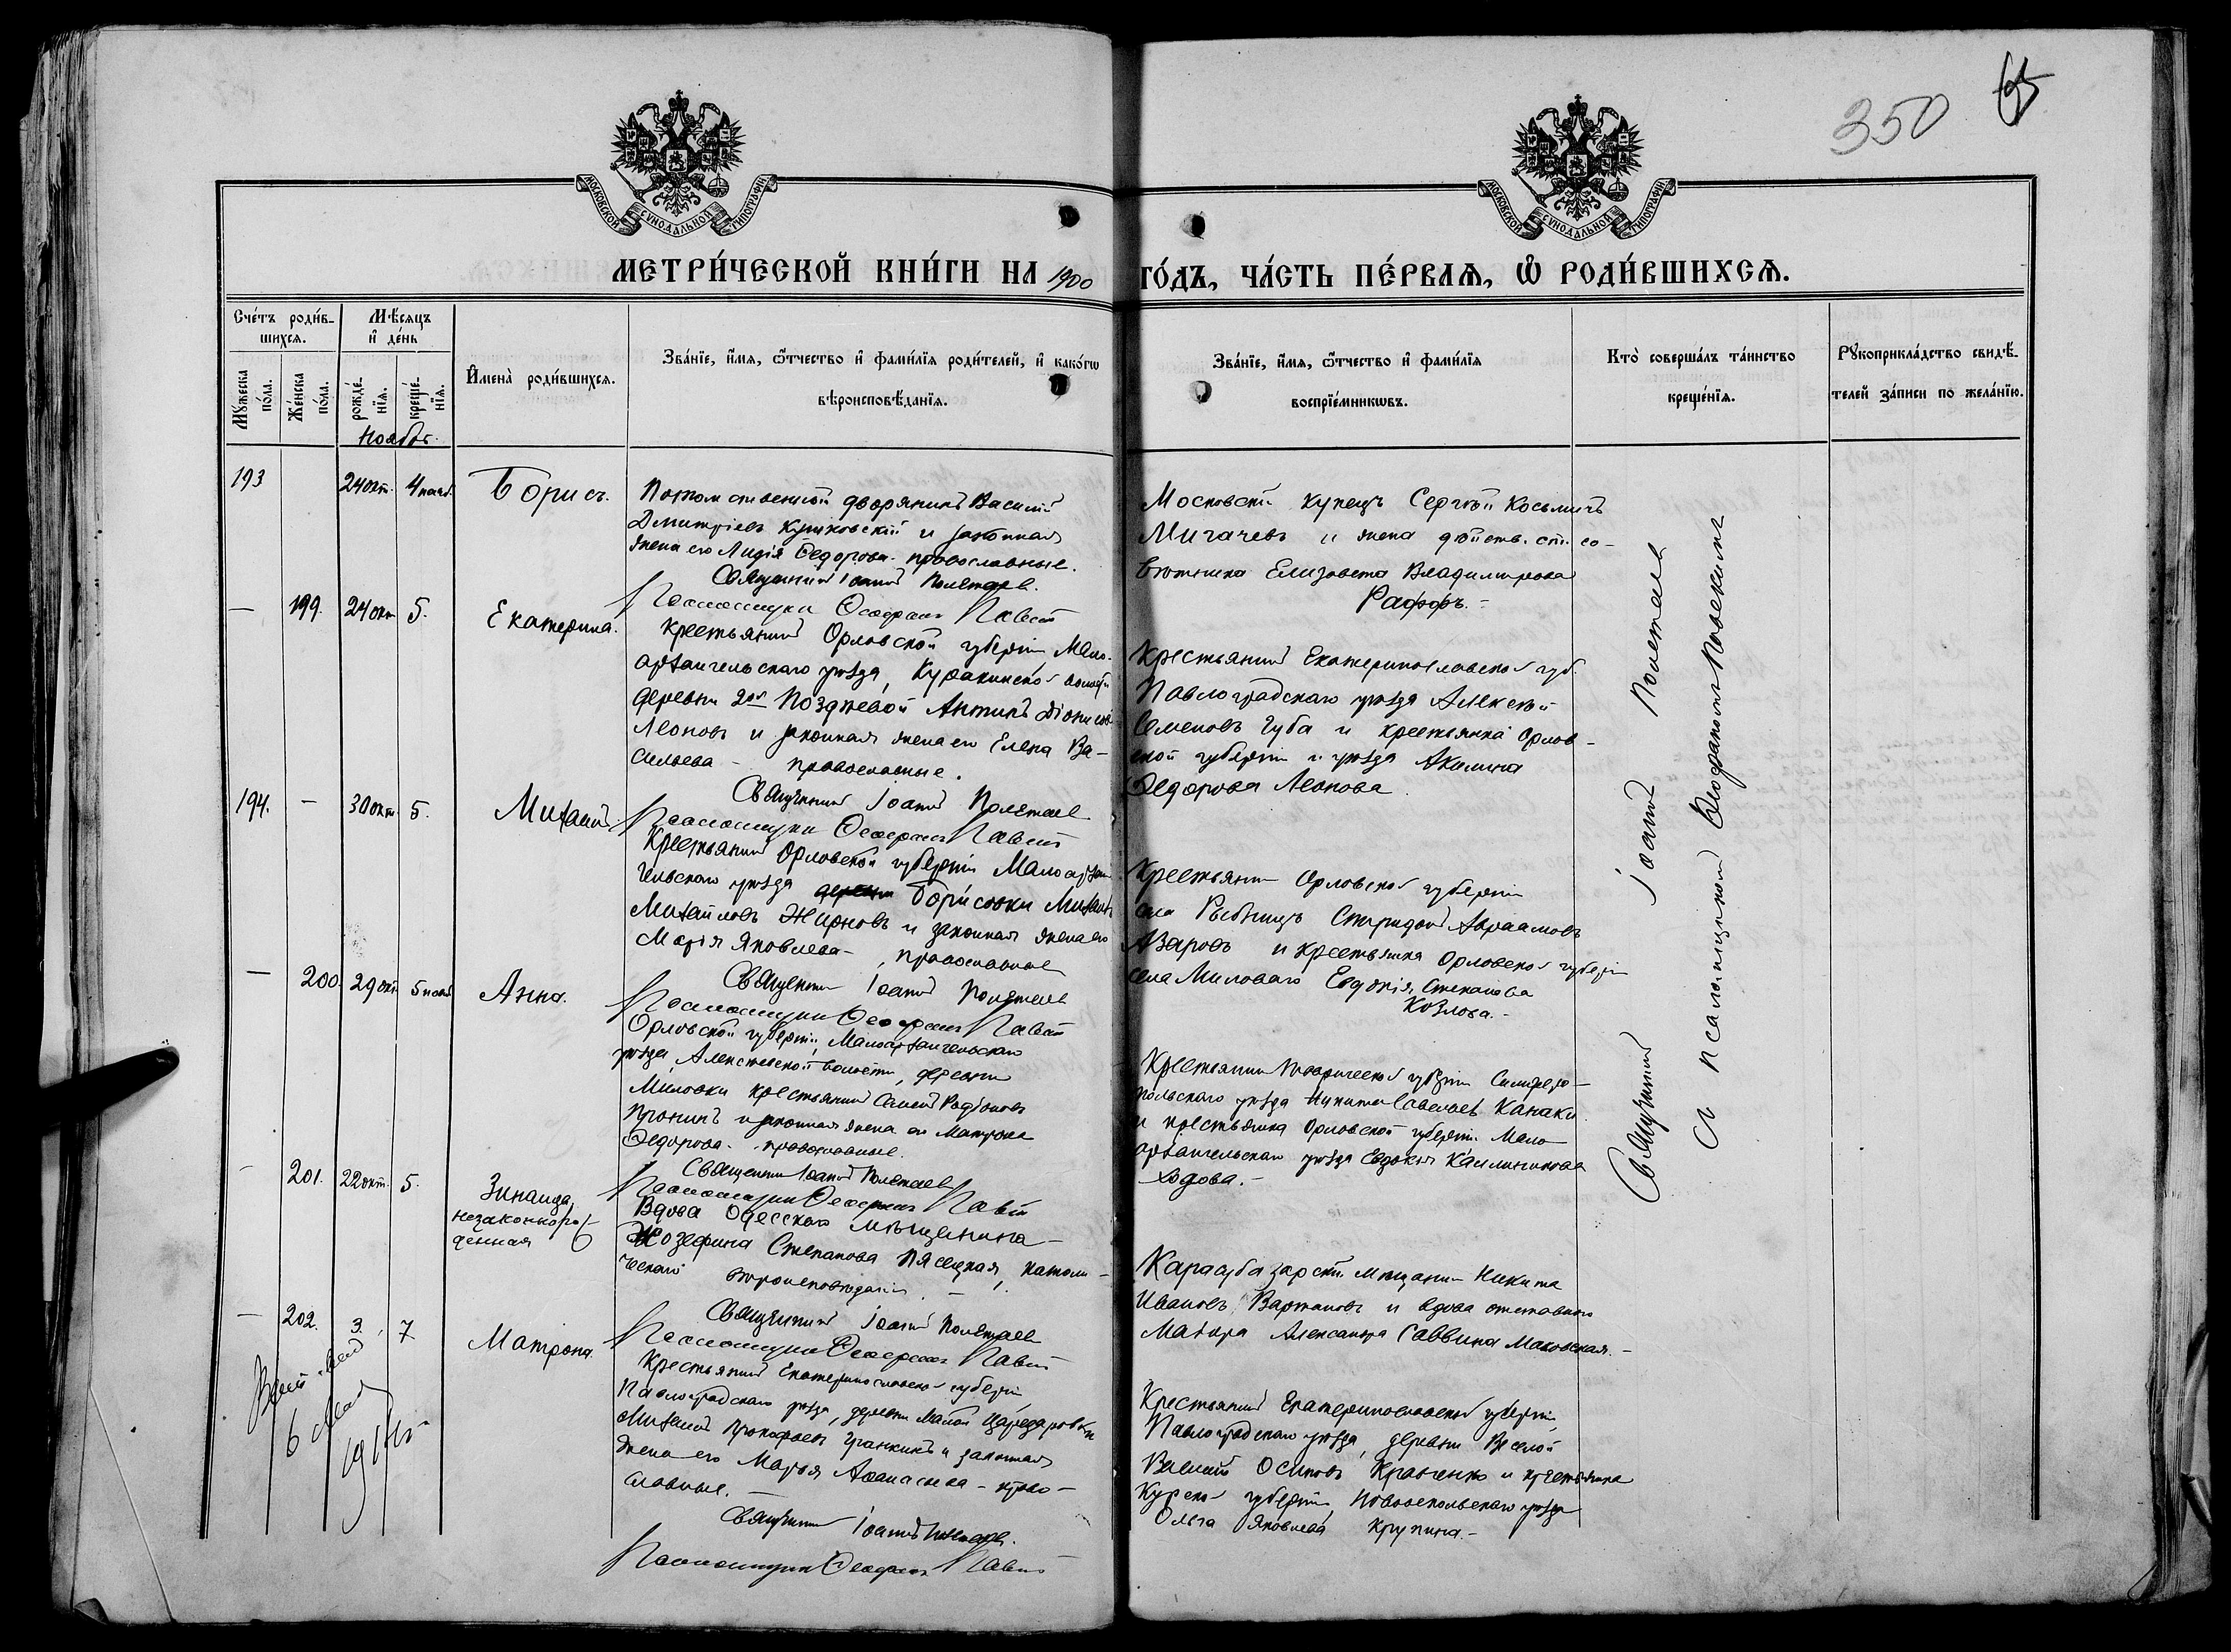 350
65
МОСКОВСКОЙ СѴНОДАЛЬНОЙ ТИПОГРАФІИ
МОСКОВСКОЙ СѴНОДАЛЬНОЙ ТИПОГРАФІИ
МЕТРИ́ЧЕСКОЙ КНИ́ГИ НА 1900 ГО́ДЪ, ЧА́СТЬ ПЕ́РВАѦ, Ѡ РОДИ́ВШИХСѦ.
Сче́тъ роди́в-
шихсѧ.
Мꙋ́жеска
по́ла.
Же́нска
по́ла.
Мѣ́сѧцъ
и҆ де́нь
рожде́-
нїѧ.
креще́-
нїѧ.
Ноябрь.
И҆мена̀ роди́вшихсѧ.
Зва́нїе, и҆́мѧ, ѻ҆́тчество и҆ фами́лїѧ роди́телей, и҆ како́гѡ
вѣроисповѣ́данїѧ.
Зва́нїе, и҆́мѧ, ѻ҆́тчество и҆ фами́лїѧ
воспрїе́мникѡвъ.
Кто̀ соверша́лъ та́инство
креще́нїѧ.
Рꙋкоприкла́дство свидѣ́-
телей за́писи по жела́нїю.
193
24 окт.
4 нояб.
Борисъ.
Потомственный дворянинъ Василій
Дмитріевъ и законная
жена его Лидія Федорова православные.
Священникъ Іоаннъ Полетаев.
Псаломщикъ Феофанъ
Московскій купецъ Сергѣй Косьмичъ
Мигачевъ и жена дѣйств. ст. со-
вѣтника Елизавета Владимірова
Раффъ. -
— 199. 24 окт 5.
Екатерина.
Крестьянинъ Орловской губерніи Мало-
архангельскаго уѣзда, Куракинской волости
деревни 2ой Позднеевой Антипъ Діонисов
Леоновъ и законная жена его Елена Ва-
сильева - православные.
Священникъ Іоаннъ Полетаев
Псаломщикъ Феофанъ
Крестьянинъ Екатеринославской губ.
Павлоградскаго уѣзда Алексѣй
Семеновъ Губа и крестьянка Орлов-
ской губерніи и уѣзда Акилина
Федорова Леонова.
194. — 30 окт 5.
Михаилъ.
Крестьянинъ Орловской губерніи Малоархан
гельскаго уѣзда Борисовки Михаилъ
Михайловъ Жирновъ и законная жена его
Марія Яковлева - православные
Священникъ Іоаннъ Полетаев
Псаломщикъ Феофанъ
Крестьянин Орловской губерніи
села Рыбницъ Спиридонъ Авраамовъ
Азаровъ и крестьянка Орловской губерніи
села Миловаго Евдокія Степанова
Козлова. -
— 200. 29 окт 5 нояб
Анна.
Орловской губерніи, Малоархангельскаго
уѣзда Алексѣевской волости, деревни
Миловки крестьянинъ Семенъ Родіоновъ
Пронинъ и законная жена его Матрона
Федорова - православные.
Священникъ Іоаннъ Полетаев
Псаломщикъ Феофанъ
Крестьянин Таврической губерніи Симферо-
польскаго уѣзда Никита Савельев Канаки
и крестьянка Орловской губерніи Мало-
архангельскаго уѣзда Евдокія Каллиникова
Ходова. -
— 201. 22 окт. 5.
Зинаида,
незаконнорож-
денная
Вдова Одесскаго мѣщанина -
Жозефина Степанова Пясецкая, католи-
ческаго вѣроисповѣданія. -
Священникъ Іоаннъ Полетаев
Псаломщикъ Феофанъ
Карасубазарскій мѣщанин Никита
Ивановъ Вартановъ и вдова отставного
маіора Александра Саввина Маковская. -
— 202. 3. 7
Матрона.
Крестьянинъ Екатеринославской губерніи,
Павлоградскаго уѣзда, деревни Малой Царедаровки
Михаилъ Прокофьевъ Гранкинъ и законная
жена его Марья Афанасьева - право-
славные. -
Священникъ Іоаннъ Полетаев.
Псаломщикъ Феофанъ
Крестьянинъ Екатеринославской губерніи,
Павлоградскаго уѣзда, деревни Веселой
Василій Осиповъ Кравченко и крестьянка
Курской губерніи, Новооскольскаго уѣзда
Ольга Яковлева Крупина. -
6 мая
1915
Священникъ Іоаннъ Полетаев
Съ псаломщикомъ Феофаномъ